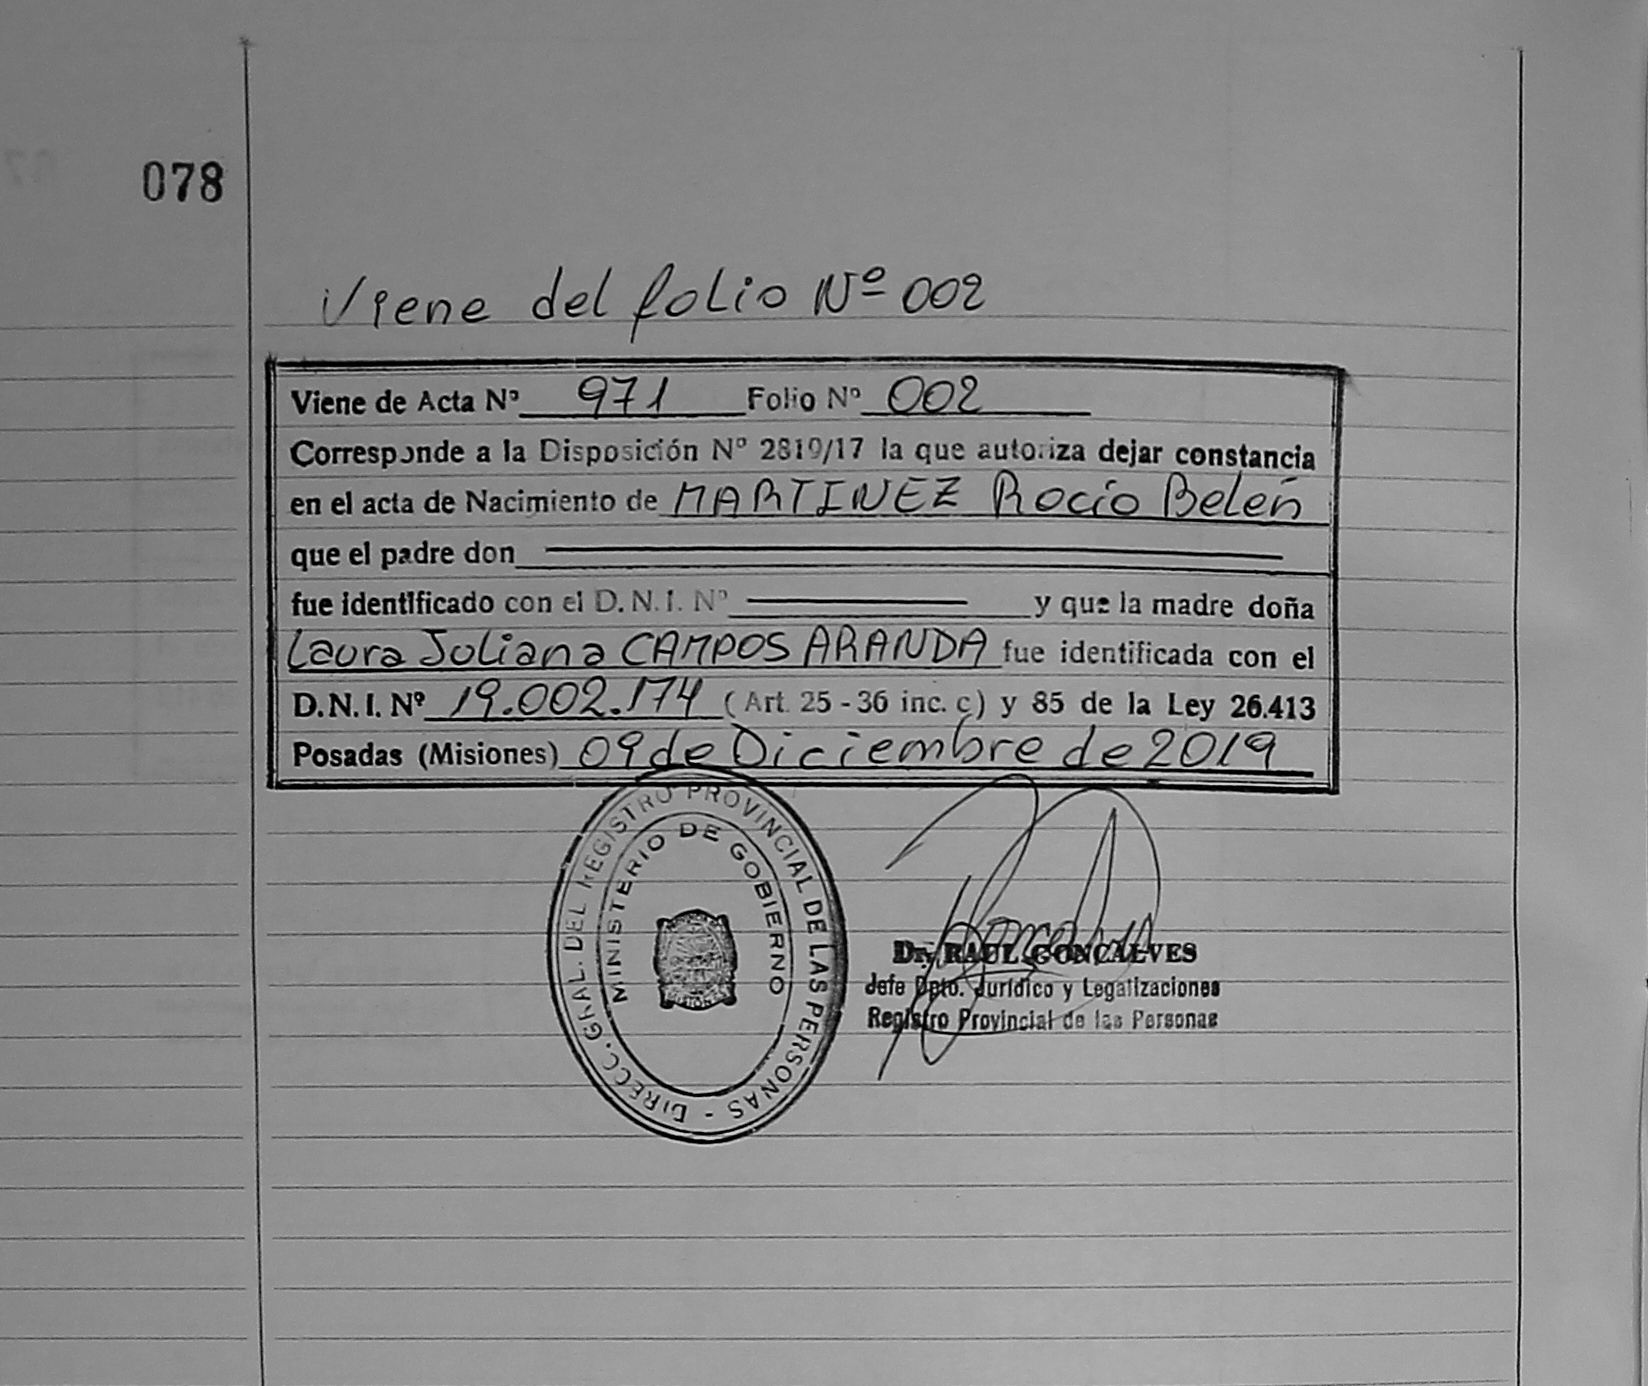 078
Viene del folio Nº 002
Viene de Acta Nº 971 Folio Nº 002
Corresponde a la Disposición Nº 2819/17 la que autoriza dejar constancia
en el acta de Nacimiento de MARTINEZ Rocío Belén
que el padre don
fue identificado con el D.N.I. Nº y que la madre doña
Laura Juliana CAMPOS ARANDA fue identificada con el
D.N.I. Nº 19.002.174 (Art. 25 - 36 inc. c) y 85 de la Ley 26.413
Posadas (Misiones) 09 de Diciembre de 2019
DIRECC. GRAL. DEL REGISTRO PROVINCIAL DE LAS PERSONAS -
MINISTERIO DE GOBIERNO
MISIONES
Dr. RAUL GONCALVES
Jefe Dpto. Jurídico y Legalizaciones
Registro Provincial de las Personas